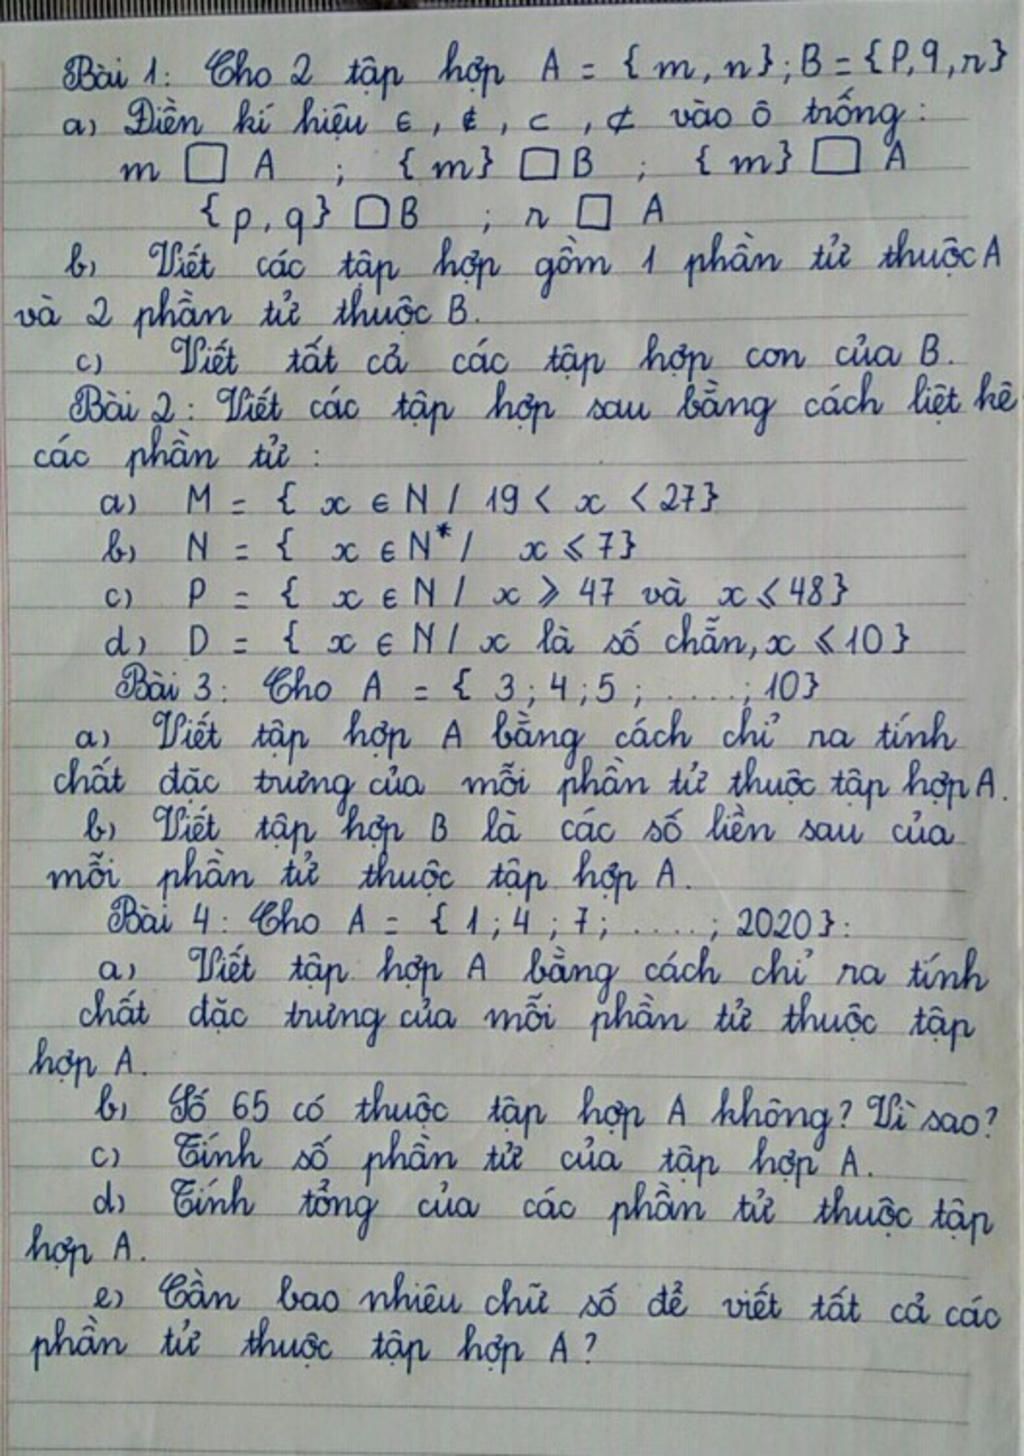 Bài 1: Cho 2 tập hợp A = { m, n }; B = { P, q, r }
a) Điền kí hiệu ∈, ∉, ⊂, ⊄ vào ô trống:
m □ A ; { m } □ B ; { m } □ A
{ p, q } □ B ; r □ A
b) Viết các tập hợp gồm 1 phần tử thuộc A
và 2 phần tử thuộc B.
c) Viết tất cả các tập hợp con của B.
Bài 2: Viết các tập hợp sau bằng cách liệt kê
các phần tử:
a) M = { x ∈ N / 19 < x < 27 }
b) N = { x ∈ N* / x ⩽ 7 }
c) P = { x ∈ N / x ⩾ 47 và x ⩽ 48 }
d) D = { x ∈ N / x là số chẵn, x ⩽ 10 }
Bài 3: Cho A = { 3; 4; 5; .....; 10 }
a) Viết tập hợp A bằng cách chỉ ra tính
chất đặc trưng của mỗi phần tử thuộc tập hợp A.
b) Viết tập hợp B là các số liền sau của
mỗi phần tử thuộc tập hợp A.
Bài 4: Cho A = { 1; 4; 7; .....; 2020 }:
a) Viết tập hợp A bằng cách chỉ ra tính
chất đặc trưng của mỗi phần tử thuộc tập
hợp A.
b) Số 65 có thuộc tập hợp A không? Vì sao?
c) Tính số phần tử của tập hợp A.
d) Tính tổng của các phần tử thuộc tập
hợp A.
e) Cần bao nhiêu chữ số để viết tất cả các
phần tử thuộc tập hợp A?